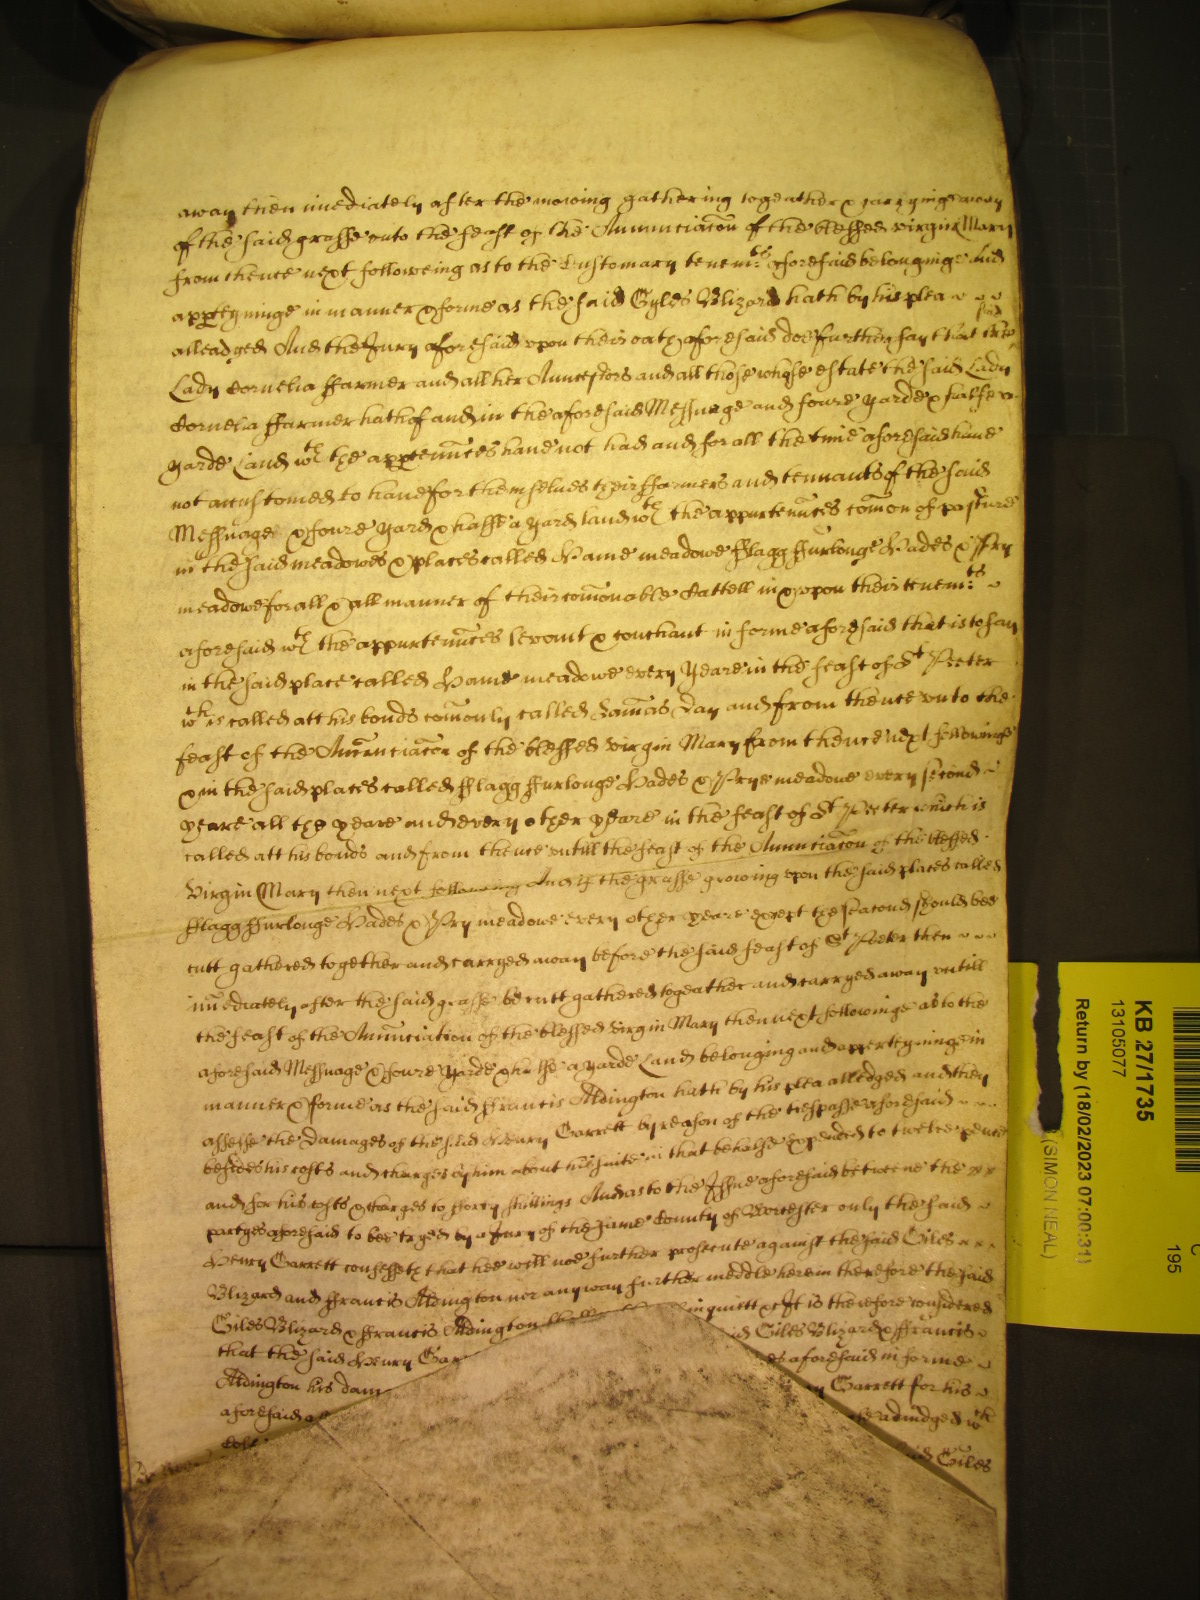 away then imediately after the mowing gathering togeather & carryinge away
of the said grasse unto the feast of the Anunciacōn of the blessed virgin Mary
from thence next followeing as to the Customary tenem:ts aforesaid belonginge and
apperteyninge in manner & forme as the said Gyles Blizard hath by his plea
alleadged And the Jury aforesaid upon their oath aforesaid doe further say that the said
Lady Cornelia ffarmer and all her Auncestors and all those whose estate the said Lady
Cornelia ffarmer hath of and in the aforesaid Messuage and foure yarde & halfe a
yarde Land wth the appertenn̄ces have not had and for all the time aforesaid have
not accustomed to have for themselves their ffarmers and tennants of the said
Messuage & foure yard & halfe a yard land wth the appurtenn̄ces com̄on of pasture
in the said meadowes & places called Hame meadowe fflagg ffurlonge Hades & Pry
meadowe for all & all manner of their com̄onable Cattell in & upon their tenem:ts
aforesaid wth the appurtenn̄ces levant & couchant in forme aforesaid that is to say
in the said place called Hame meadowe every yeare in the feast of St Peeter
wch is called att his bonds com̄only called Lam̄as Day and from thence unto the
feast of the Anunciacōn of the blessed virgin Mary from thence next followinge
& in the said places called fflagg ffurlonge Hades & Prye meadowe every second
yeare all the yeare and every other yeare in the feast of St Peeter which is
called att his bonds and from thence untill the feast of the Anunciacōn of the blessed
Virgin Mary then next following And if the grasse growing upon the said places called
fflagg ffurlonge Hades & Pry meadowe every other yeare except the second should bee
cutt gathered together and carryed away before the said feast of St Peeter then
im̄ediately after the said grasse be cutt gathered togeather and carryed away untill
the feast of the Anunciation of the blessed Virgin Mary then next followinge as to the
aforesaid Messuage & foure yarde & halfe a yarde Land belonging and apperteyninge in
manner & forme as the said ffrancis Aldington hath by his plea alledged and they
assesse the damages of the said Henry Garrett by reason of the trespasse aforesaid
besides his costs and charges by him about his suite in that behalfe expended to twelve pence
and for his costs & charges to forty shillings And as to the Issue aforesaid betweene the
partyes aforesaid to bee tryed by a Jury of the same County of Worcester only the said
Henry Garrett confesseth that hee will not further prosecute against the said Giles
Blizard and ffrancis Aldington nor any way further meddle herein therefore the said
Giles Blizard & ffrancis Aldington quiett &c It is therefore considered
that the said Henry Gar Giles Blizard & ffrancis
Aldington his dam aforesaid in forme
aforesaid Garrett for his
adiudged wth
Giles
KB 27/1735
13105077
Return by (18/02/2023 07:00:31)
(SIMON NEAL)
C
195